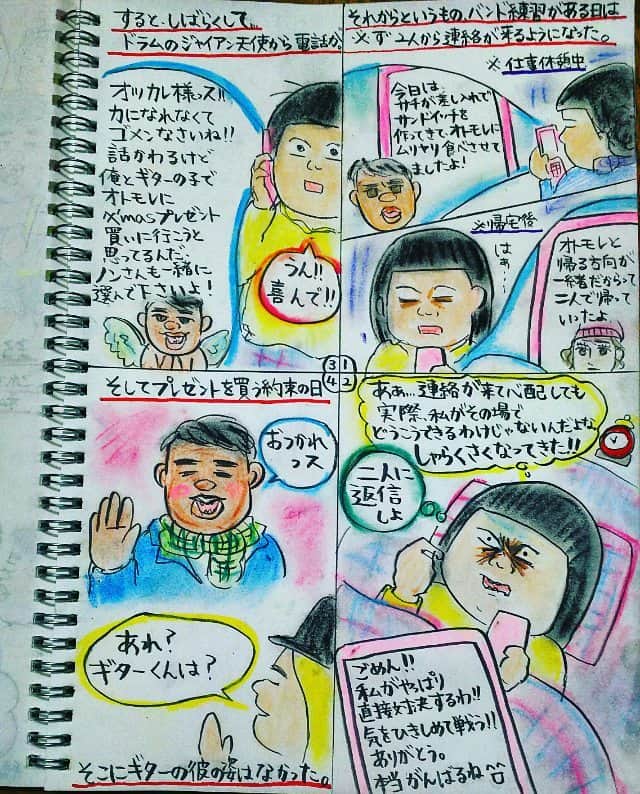 それからというもの、バンド練習がある日は
必ず2人から連絡が来るようになった。
※仕事休憩中
今日は
サチが差し入れで
サンドイッチを
作ってきて、オトモレに
ムリヤリ食べさせて
ましたよ!
※帰宅後
はぁ…
オトモレと
帰る方向が
一緒だからって
二人で帰って
いったよ
ああ…連絡が来て心配しても
実際、私がその場で
どうこうできるわけじゃないんだよな
しゃらくさくなってきた!!
二人に
返信
しよ
ごめん!!
私がやっぱり
直接対決するわ!!
気をひきしめて戦う!!
ありがとう。
本当がんばるね
すると、しばらくして…
ドラムのジャイアン天使から電話が。
オッカレ様ッス!!
力になれなくて
ゴメンなさいね!!
話かわるけど
俺とギターの子で
オトモレに
X'masプレゼント
買いに行こうと
思ってるんだ、
ノンさんも一緒に
選んで下さいよ!
うん!!
喜んで!!
3 1
4 2
そしてプレゼントを買う約束の日
おつかれ
っス
あれ?
ギターくんは?
そこにギターの彼の姿はなかった。